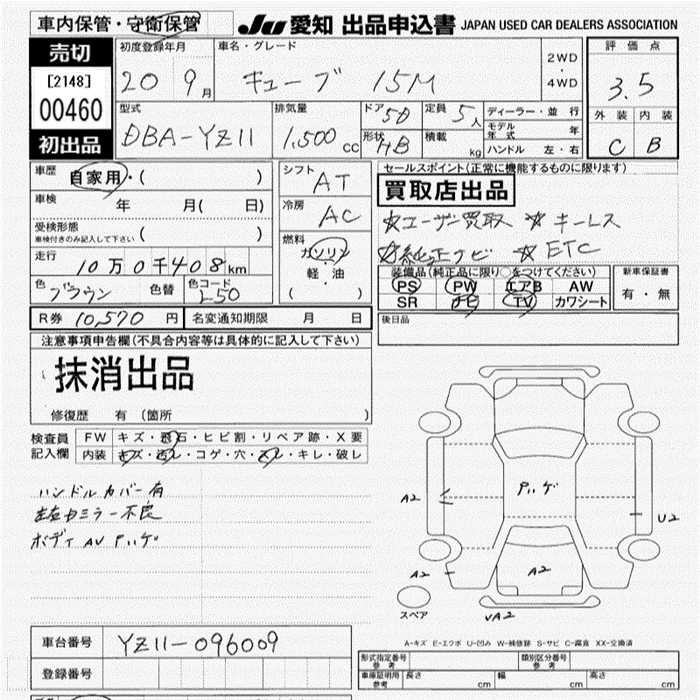 車内保管・守衛保管
JU 愛知 出品申込書 JAPAN USED CAR DEALERS ASSOCIATION
売切
[2148]
00460
初出品
初度登録年月
20 9月
車名・グレード
キューブ 15M
2WD
・
4WD
評価点
3.5
外装 内装
C B
型式
DBA-YZ11
排気量
1,500cc
ドア 5D
形状 HB
定員 5人
積載 kg
ディーラー・並行
モデル年式 年
ハンドル 左・右
車歴
自家用・( )
車検 年 月( 日)
受検形態
車検付きのみ記入して下さい ( )
走行
10万0千408km
色 ブラウン 色替 色コード L50
シフト AT
冷房 AC
燃料
ガソリン
・
軽油
( )
セールスポイント(正常に機能するものに限ります)
買取店出品
☆ユーザー買取 ☆キーレス
☆純正ナビ ☆ETC
装備品(純正品に限り○をつけてください)
PS PW エアB AW
SR ナビ TV カワシート
新車保証書
有・無
後日品
R券 10,570円 名変通知期限 月 日
注意事項申告欄(不具合内容等は具体的に記入して下さい)
抹消出品
修復歴 有 (箇所 )
検査員記入欄
FW キズ・飛石・ヒビ割・リペア跡・X要
内装 キズ・汚レ・コゲ・穴・スレ・キレ・破レ
ハンドルカバー有
左右ドミラー不良
ボディ AU Pハゲ
Pハゲ
A2
U2
A2
A2
A2
スペア
UA2
A-キズ E-エクボ U-凹み W-補修跡 S-サビ C-腐食 XX-交換済
車台番号 YZ11-096009
登録番号
形式指定番号 参考
類別区分番号 参考
車庫証明用 参考 長さ cm 幅 cm 高さ cm